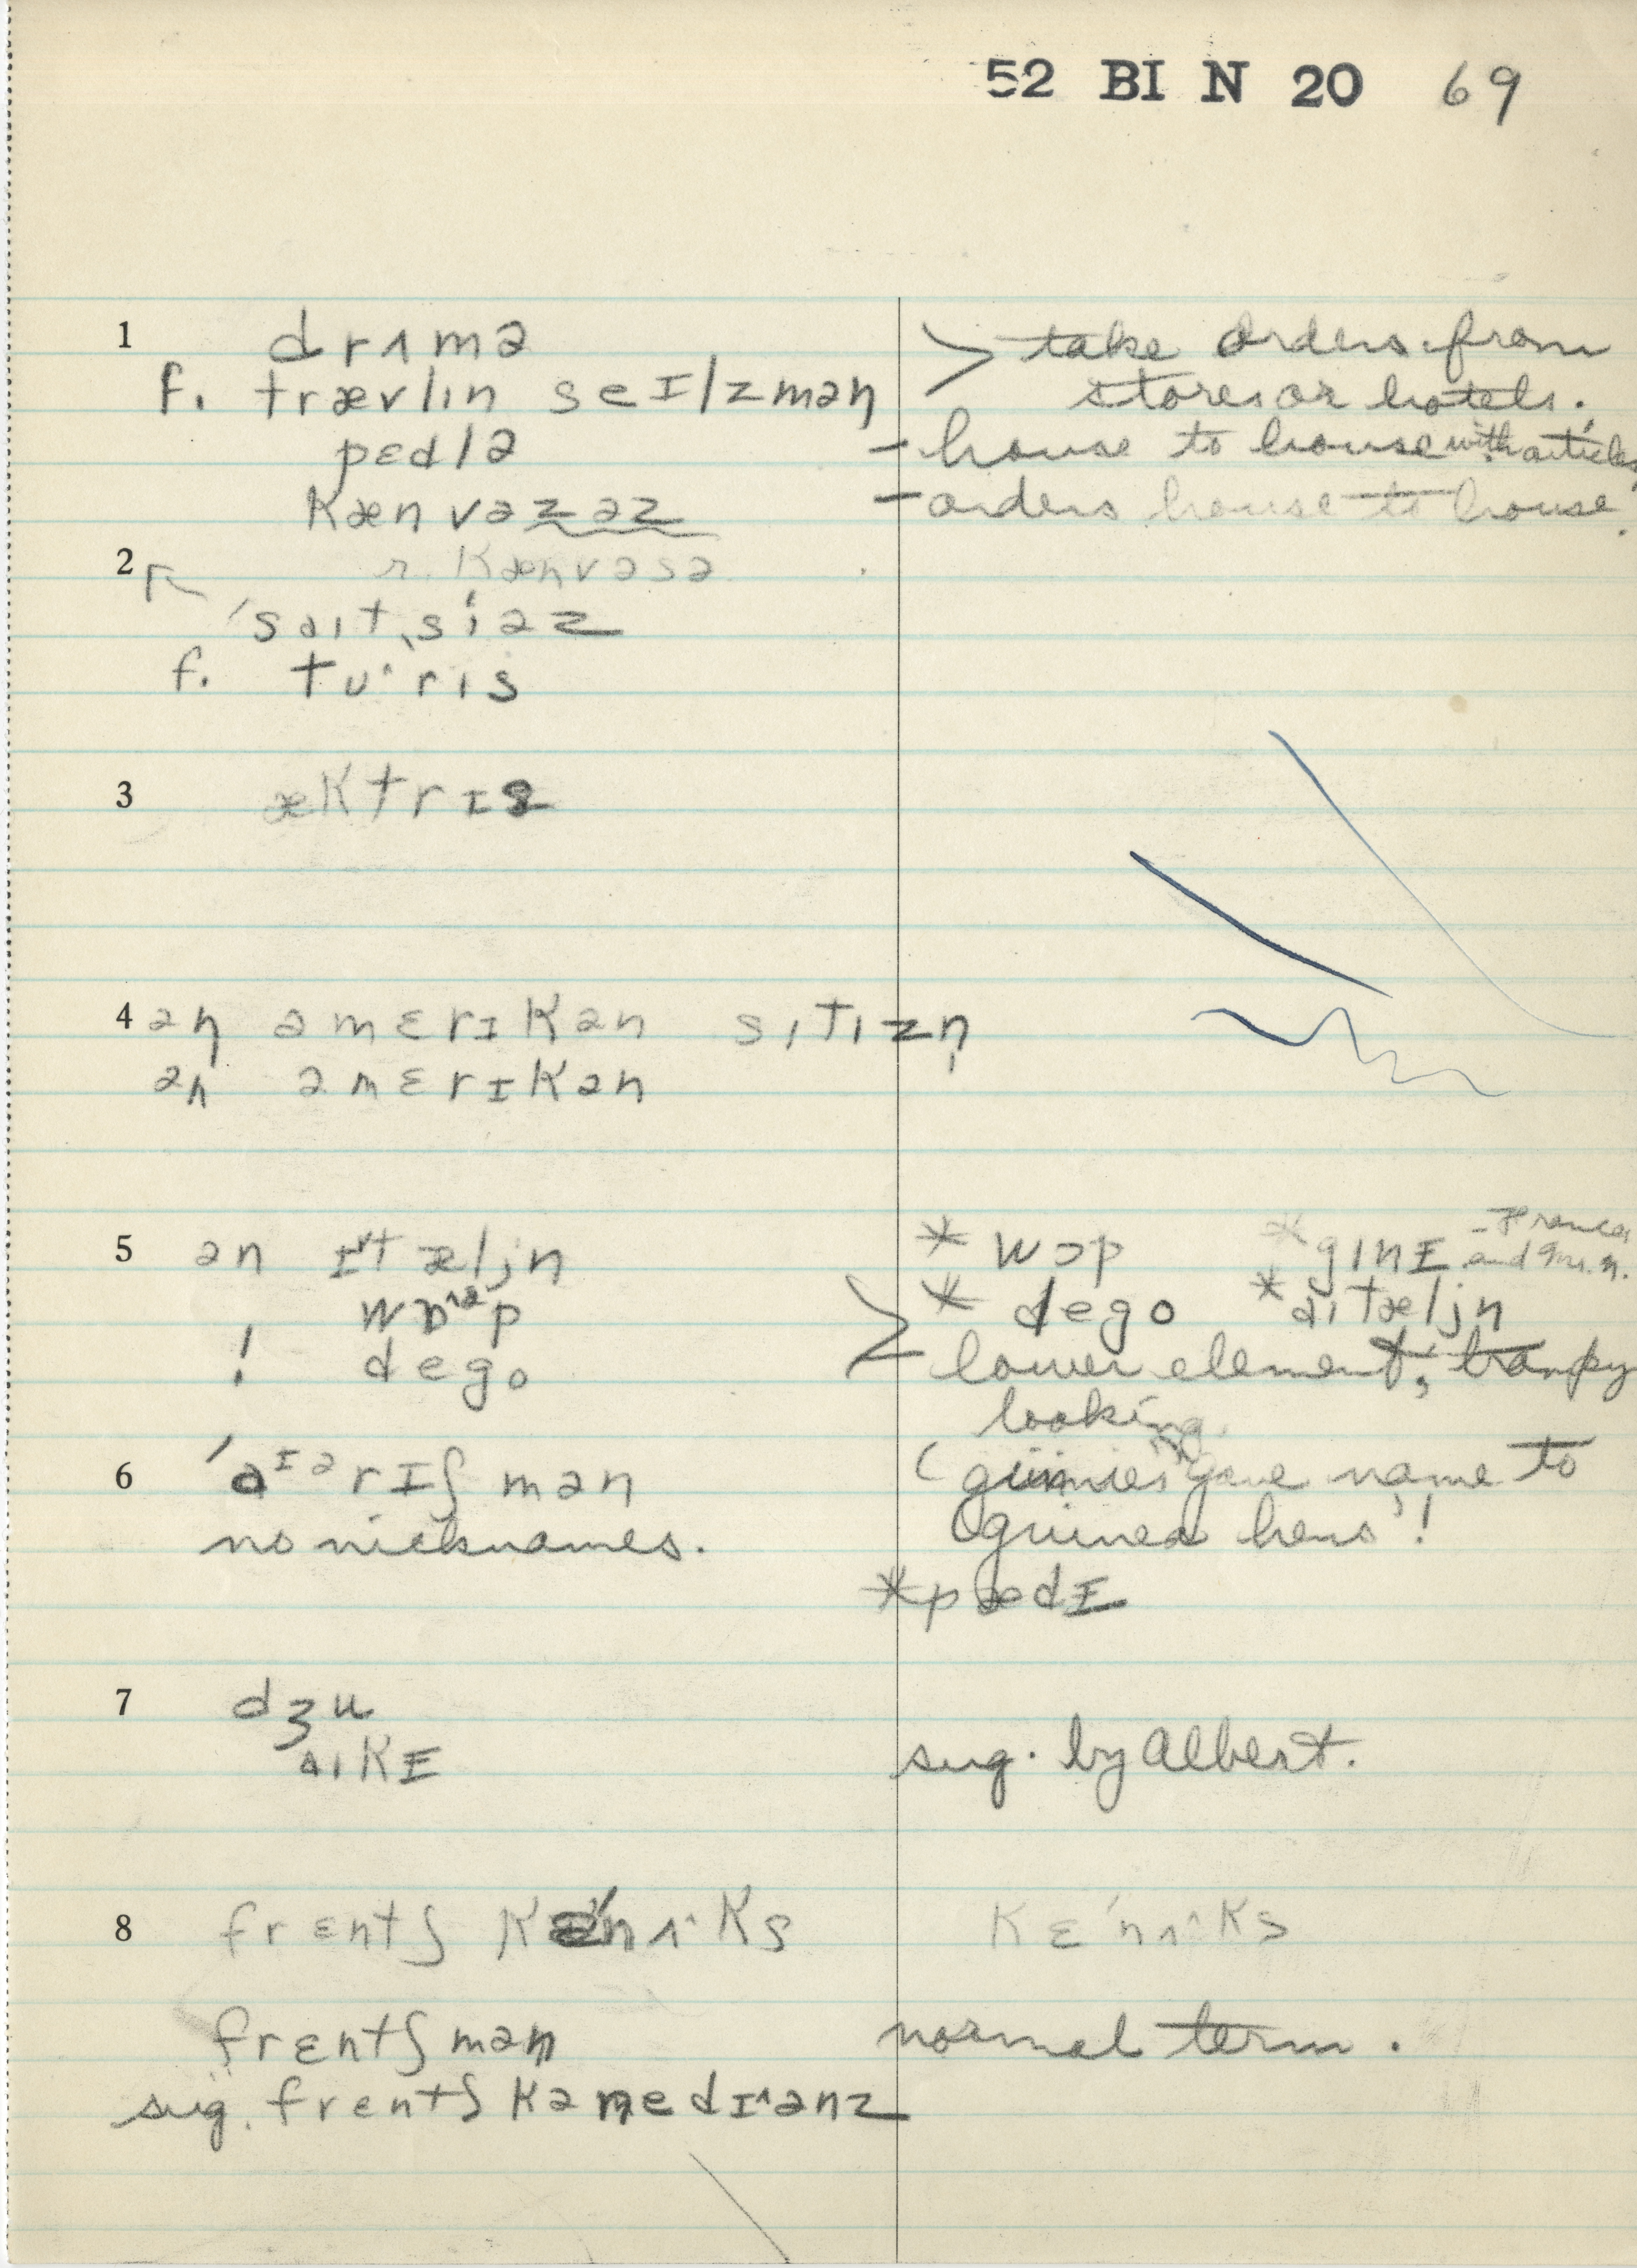 52 BI N 20 69
1 drʌmə > take orders from
f. trævlɪn seɪlzmən stores or hotels.
pɛdlə – house to house with articles
kænvəzəz – orders house to house.
2 r. kænvəsə
'saɪt,siəz
f. tu^rɪs
3 æktrɪs
4 ən əmɛrɪkən sɪtɪzn̩
ən əmɛrɪkən
5 ən ɪtæljn * wɔp * gɪnɪ – Frances and Mr. N.
wɒp * dego * aɪtæljn
! dego > lower element, trampy
looking
6 'aɪərɪʃmən (guinnies gave name to
no nicknames. guinea hens'!
* pædɪ
7 dʒu
aɪkɪ sug. by Albert.
8 frɛntʃ kɛ'nʌ^ks kɛ'nʌ^ks
frɛntʃmən normal term.
sug. frɛntʃ kənedɪ^ənz